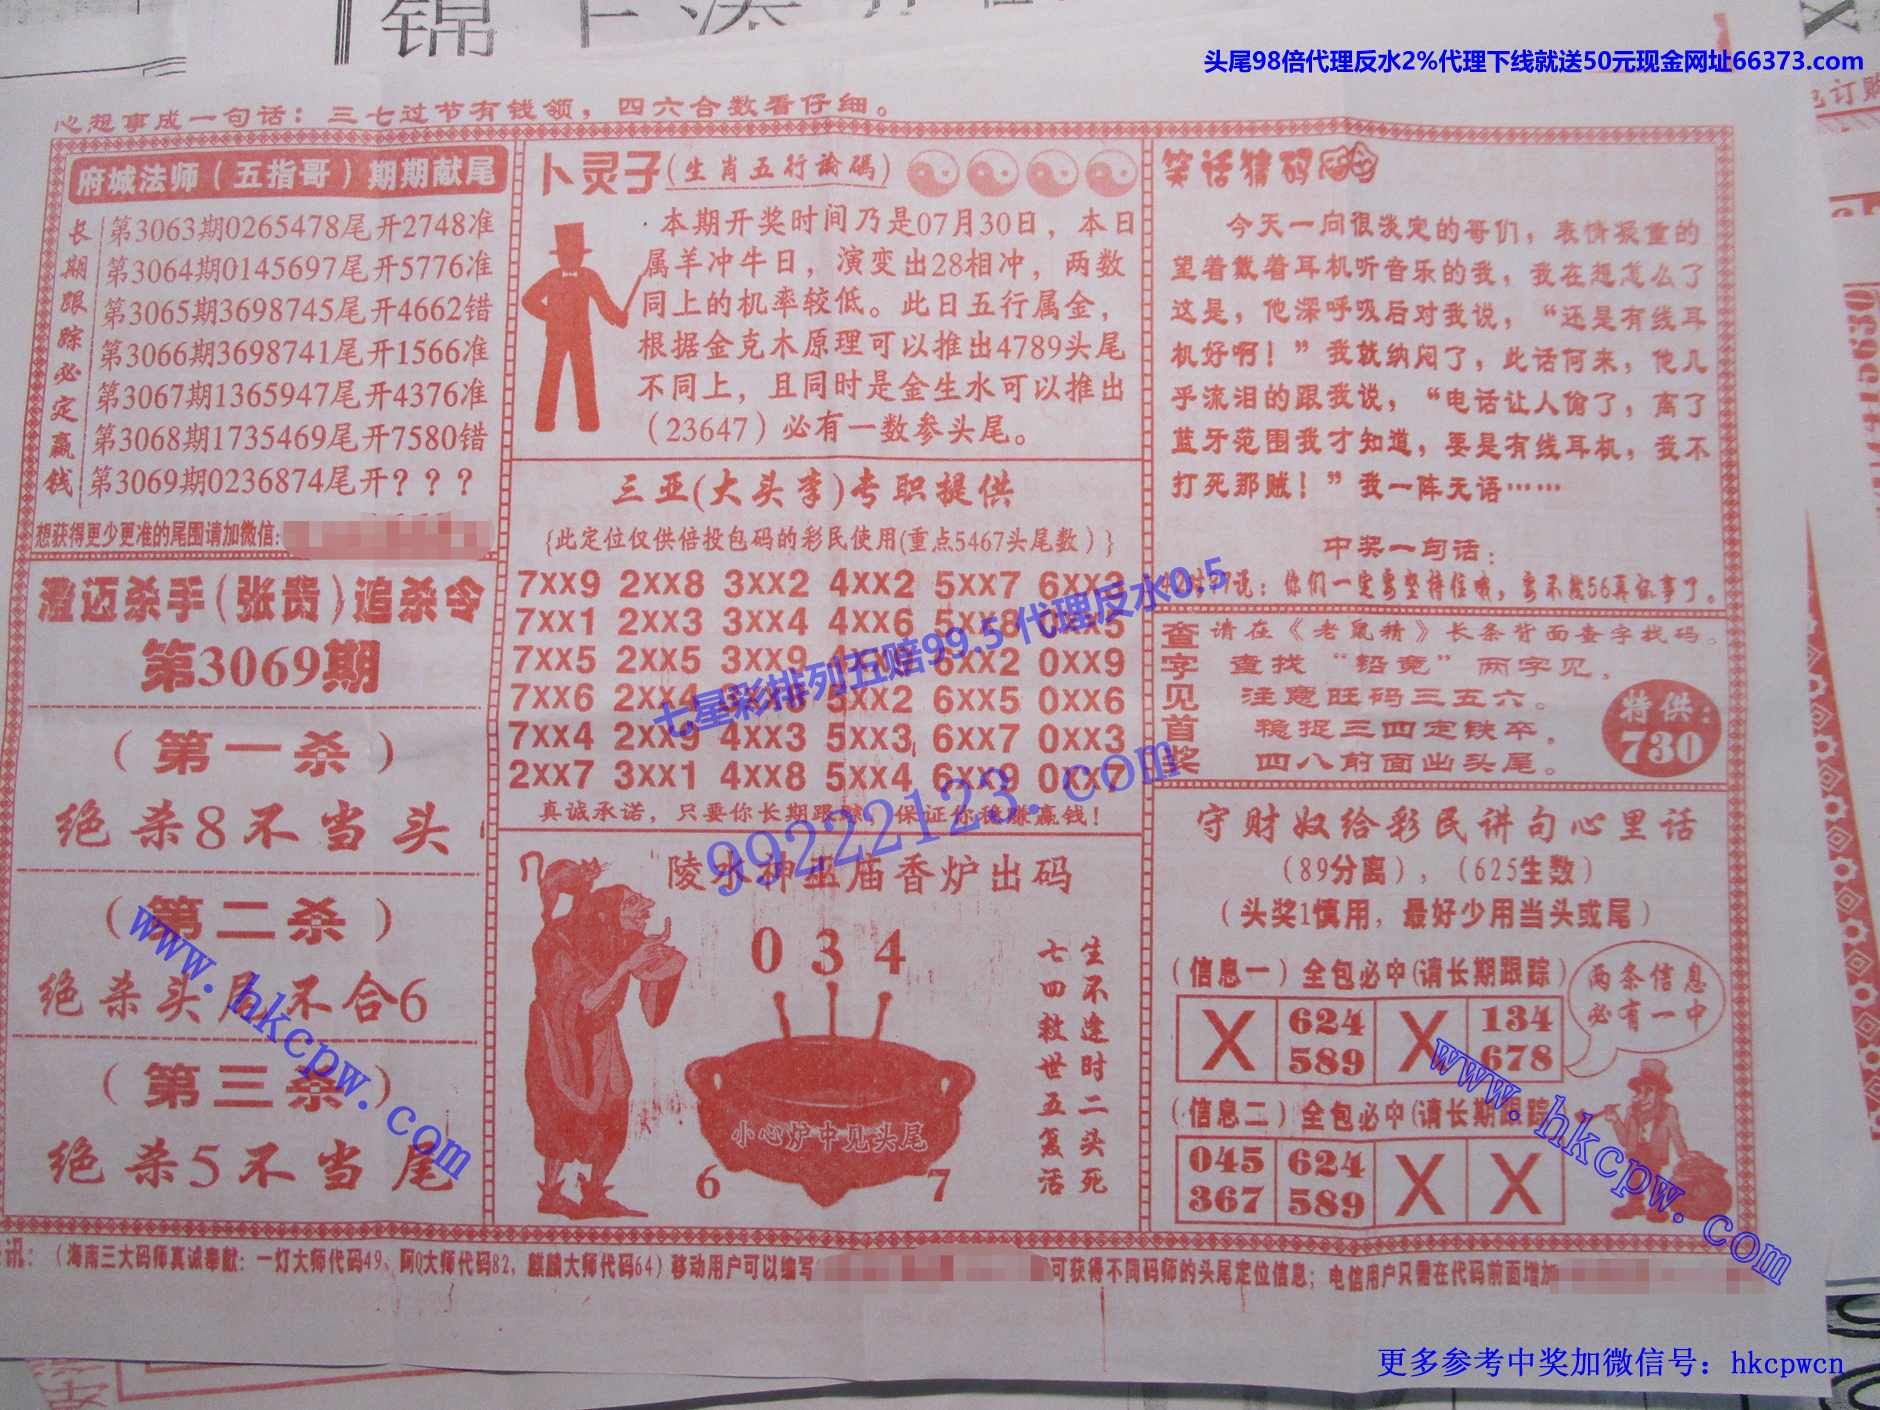 头尾98倍代理反水2%代理下线就送50元现金网址66373.com
心想事成一句话：三七过节有钱领，四六合数看仔细。
府城法师（五指哥）期期献尾
长期跟踪必定赢钱
第3063期0265478尾开2748准
第3064期0145697尾开5776准
第3065期3698745尾开4662错
第3066期3698741尾开1566准
第3067期1365947尾开4376准
第3068期1735469尾开7580错
第3069期0236874尾开？？？
想获得更少更准的尾围请加微信:
澄迈杀手（张贵）追杀令
第3069期
（第一杀）
绝杀8不当头
（第二杀）
绝杀头尾不合6
（第三杀）
绝杀5不当尾
卜灵子(生肖五行论码)
本期开奖时间乃是07月30日，本日
属羊冲牛日，演变出28相冲，两数
同上的机率较低。此日五行属金，
根据金克木原理可以推出4789头尾
不同上，且同时是金生水可以推出
（23647）必有一数参头尾。
三亚(大头李)专职提供
{此定位仅供倍投包码的彩民使用(重点5467头尾数)}
7xx9 2xx8 3xx2 4xx2 5xx7 6xx3
7xx1 2xx3 3xx4 4xx6 5xx8 0xx5
7xx5 2xx5 3xx9 6xx2 0xx9
7xx6 2xx4 5xx2 6xx5 0xx6
7xx4 2xx9 4xx3 5xx3 6xx7 0xx3
2xx7 3xx1 4xx8 5xx4 6xx9 0xx7
真诚承诺，只要你长期跟踪，保证你稳赚赢钱！
七星彩排列五赔99.5代理反水0.5
99222123.com
陵水神巫庙香炉出码
0 3 4
生不逢时二头死
七四救世五复活
小心炉中见头尾
6 7
笑话猜码
今天一向很淡定的哥们，表情凝重的
望着戴着耳机听音乐的我，我在想怎么了
这是，他深呼吸后对我说，“还是有线耳
机好啊！”我就纳闷了，此话何来，他几
乎流泪的跟我说，“电话让人偷了，离了
蓝牙范围我才知道，要是有线耳机，我不
打死那贼！”我一阵无语……
中奖一句话：
说：你们一定要坚持住哦，要不然56真你事了。
查字见首奖
请在《老鼠精》长条背面查字找码。
查找“铅竞”两字见，
注意旺码三五六。
稳捉三四定铁卒，
四八前面出头尾。
特供：
730
守财奴给彩民讲句心里话
（89分离），（625生数）
（头奖1慎用，最好少用当头或尾）
（信息一）全包必中(请长期跟踪)
X 624 589 X 134 678
两条信息
必有一中
（信息二）全包必中(请长期跟踪
045 367 624 589 X X
www.hkcpw.com
www.hkcpw.com
讯：（海南三大码师真诚奉献：一灯大师代码49、阿Q大师代码82，麒麟大师代码64）移动用户可以编写
可获得不同码师的头尾定位信息；电信用户只需在代码前面增加
更多参考中奖加微信号：hkcpwcn